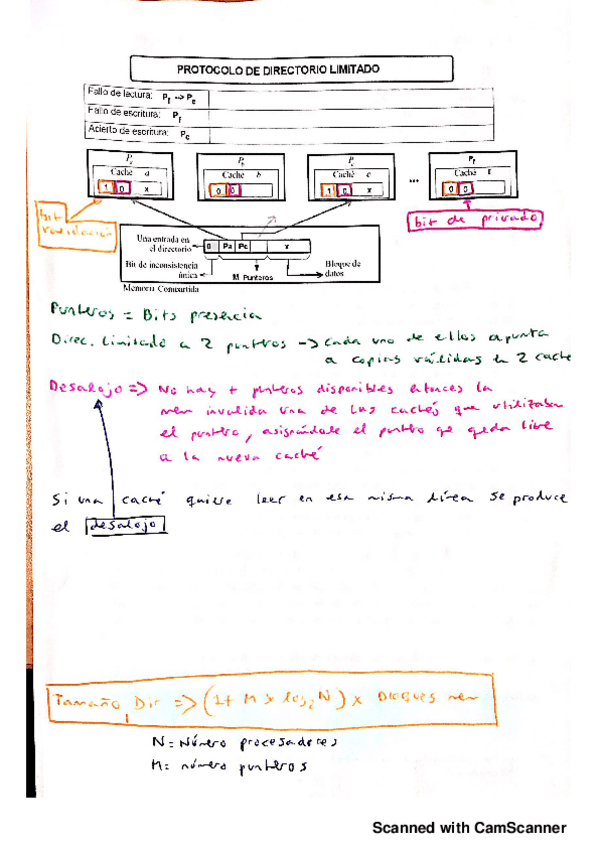 PROTOCOLO DE DIRECTORIO LIMITADO
Fallo de lectura: Pf --> Pc
Fallo de escritura: Pf
Acierto de escritura: Pc
Caché a
1 0 x
Caché b
0 0
Caché c
1 0 x
...
Pf
Caché f
0 0
bit
validación
bit de privado
Una entrada en
el directorio
0 Pa Pc x
Bit de inconsistencia
única
M Punteros
Bloque de
datos
Memoria Compartida
Punteros = Bits presencia
Direc. Limitado a 2 punteros -> cada uno de ellos apunta
a copias válidas en 2 caché
Desalojo => No hay + punteros disponibles entonces la
mem invalida una de las cachés que utilizaba
el puntero, asignándole el puntero qe queda libre
a la nueva caché
Si una caché quiere leer en esa misma línea se produce
el desalojo
Tamaño Dir => (1+ M x log₂ N) x Bloques mem
N = Número procesadores
M = número punteros
Scanned with CamScanner